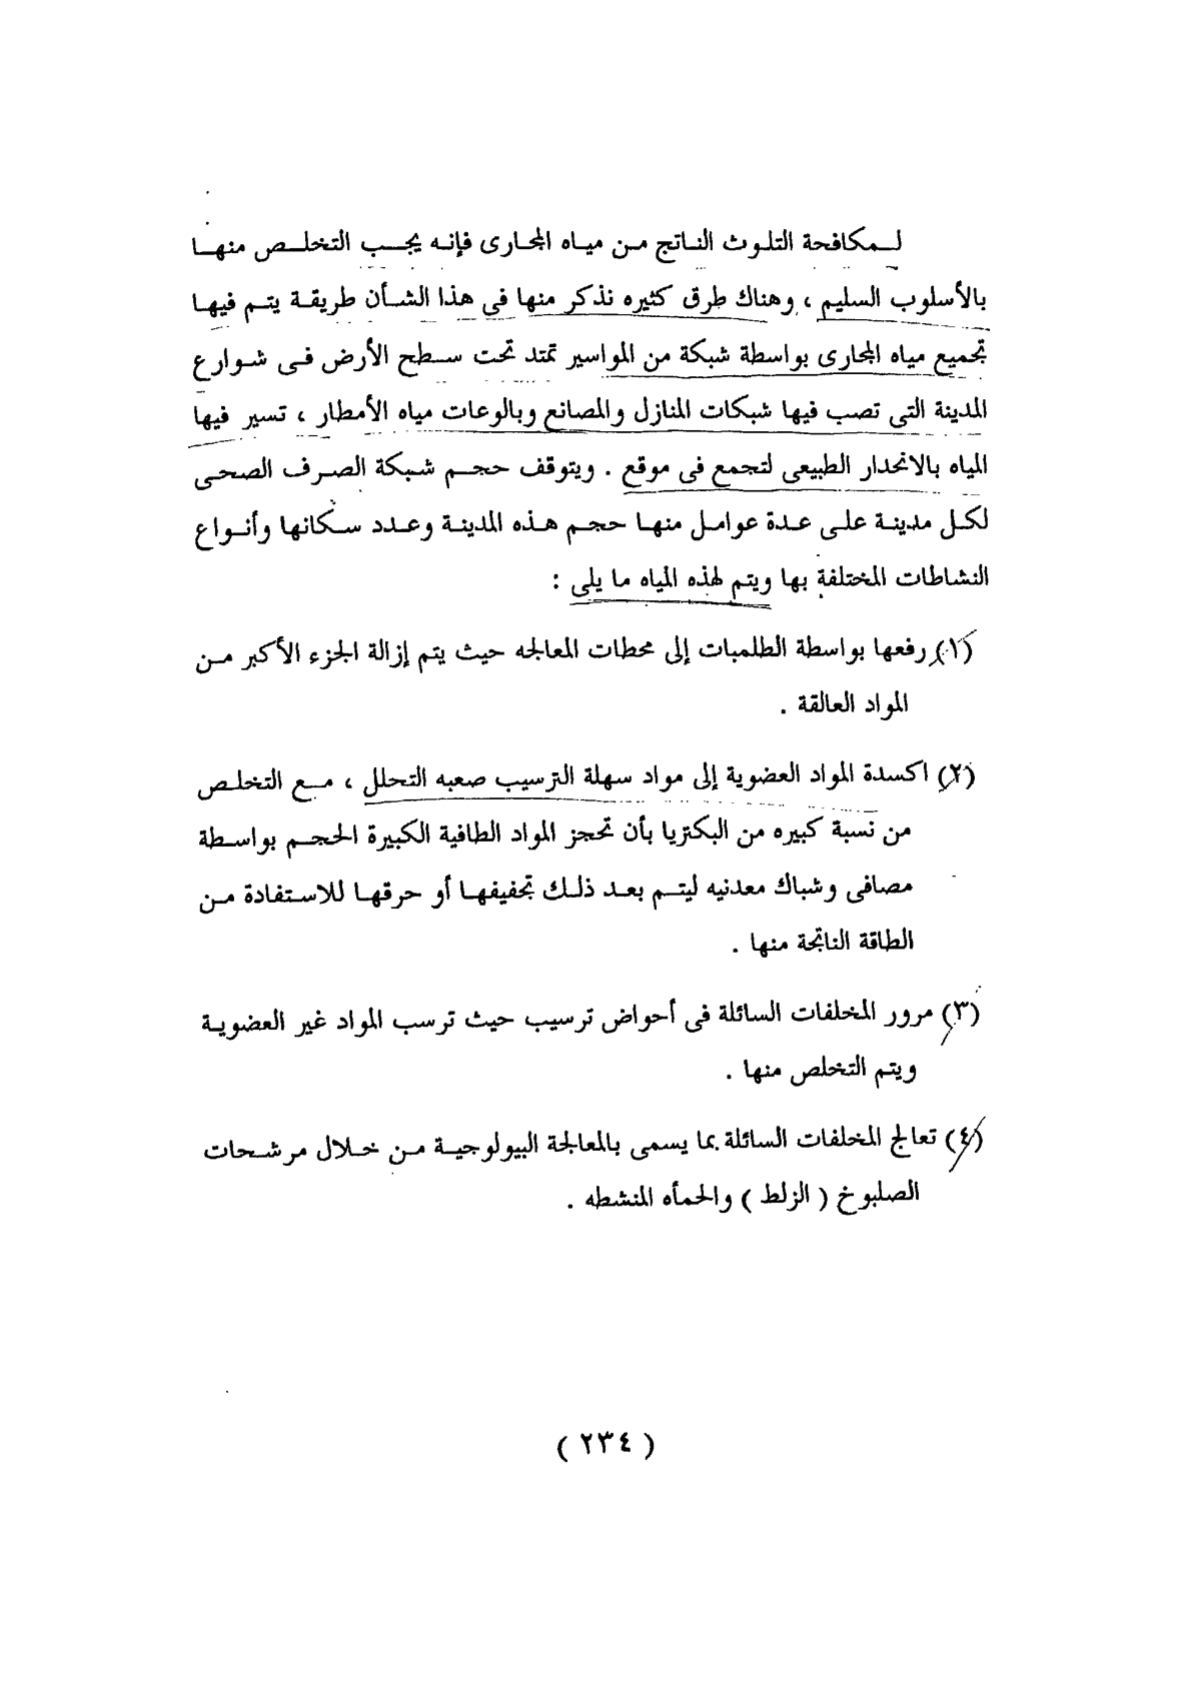 لمكافحة التلوث الناتج من مياه المجارى فإنه يجب التخلص منها
بالأسلوب السليم ، وهناك طرق كثيره نذكر منها فى هذا الشأن طريقة يتم فيها
تجميع مياه المجارى بواسطة شبكة من المواسير تمتد تحت سطح الأرض فى شوارع
المدينة التى تصب فيها شبكات المنازل والمصانع وبالوعات مياه الأمطار ، تسير فيها
المياه بالانحدار الطبيعى لتجمع فى موقع . ويتوقف حجم شبكة الصرف الصحى
لكل مدينة على عدة عوامل منها حجم هذه المدينة وعدد سكانها وأنواع
النشاطات المختلفة بها ويتم لهذه المياه ما يلى :
(١) رفعها بواسطة الطلمبات إلى محطات المعالجه حيث يتم إزالة الجزء الأكبر من
المواد العالقة .
(٢) اكسدة المواد العضوية إلى مواد سهلة الترسيب صعبه التحلل ، مع التخلص
من نسبة كبيره من البكتريا بأن تحجز المواد الطافية الكبيرة الحجم بواسطة
مصافى وشباك معدنيه ليتم بعد ذلك تجفيفها أو حرقها للاستفادة من
الطاقة الناتجة منها .
(٣) مرور المخلفات السائلة فى أحواض ترسيب حيث ترسب المواد غير العضوية
ويتم التخلص منها .
(٤) تعالج المخلفات السائلة بما يسمى بالمعالجة البيولوجية من خلال مرشحات
الصلبوخ ( الزلط ) والحمأه المنشطه .
( ٢٣٤ )